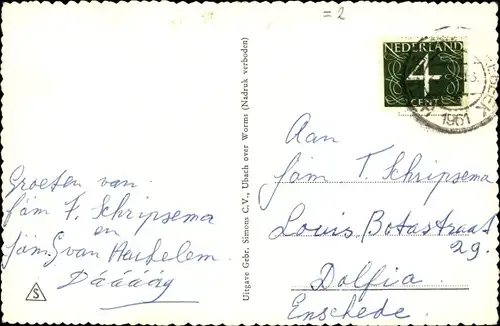 = 2
NEDERLAND
4
CENT
1961
Groeten van
fam F. Schripsema
en
fam. G van Hachelem.
Dáááág
S
Uitgave Gebr. Simons C.V., Ubach over Worms (Nadruk verboden)
Aan
fam T. Schripsema
Louis Botastraat
29.
Dolfia.
Enschede.